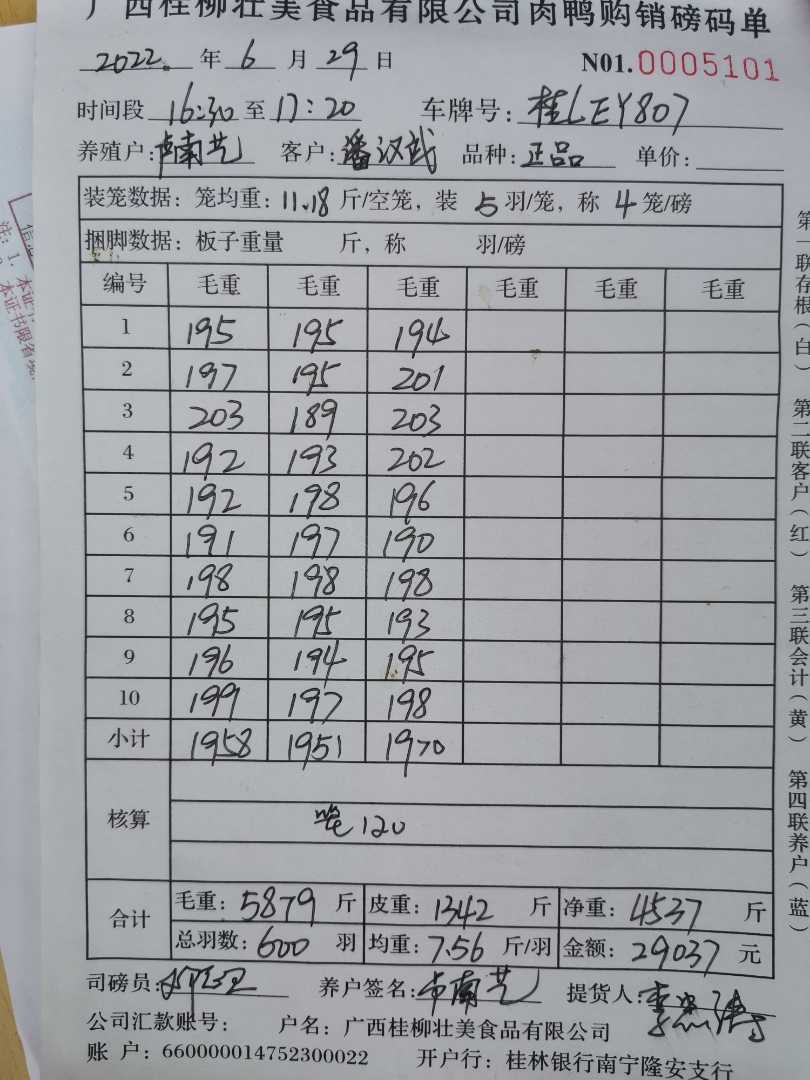 广西桂柳壮美食品有限公司肉鸭购销磅码单
2022. 年 6 月 29 日 N01.0005101
时间段 16:30 至 17:20 车牌号: 桂LEY807
养殖户: 卢南艺 客户: 潘汉武 品种: 正品 单价:
装笼数据: 笼均重: 11.18 斤/空笼, 装 5 羽/笼, 称 4 笼/磅
捆脚数据: 板子重量 斤, 称 羽/磅
编号 毛重 毛重 毛重 毛重 毛重 毛重
1 195 195 194
2 197 195 201
3 203 189 203
4 192 193 202
5 192 198 196
6 191 197 190
7 198 198 198
8 195 195 193
9 196 194 195
10 199 197 198
小计 1958 1951 1970
核算 笼120
合计 毛重: 5879 斤 皮重: 1342 斤 净重: 4537 斤
总羽数: 600 羽 均重: 7.56 斤/羽 金额: 29037 元
司磅员: 养户签名: 卢南艺 提货人:
公司汇款账号: 户名: 广西桂柳壮美食品有限公司
账 户: 660000014752300022 开户行: 桂林银行南宁隆安支行
第一联存根(白) 第二联客户(红) 第三联会计(黄) 第四联养户(蓝)
注: 1. 本证
本证书限有